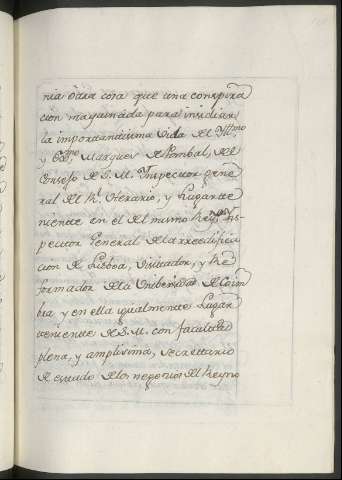 nia otra cosa que una conspira
cion maquinada para insidiar
la importantisima vida del Ill.mo
y Ex.mo Marques de Pombal, del
Consejo de S. M. Inspector gene
ral del R.l Herario, y Lugarte
niente en el del mismo Rey, Ins-
pector General de la reedifica
cion de Lisboa, Visitador, y Re
formador de la Unibersidad de Coim
bra y en ella igualmente Lugar
teniente de S. M. con facultad
plena, y amplisima, Secrettario
de estado de los negocios del Reyno